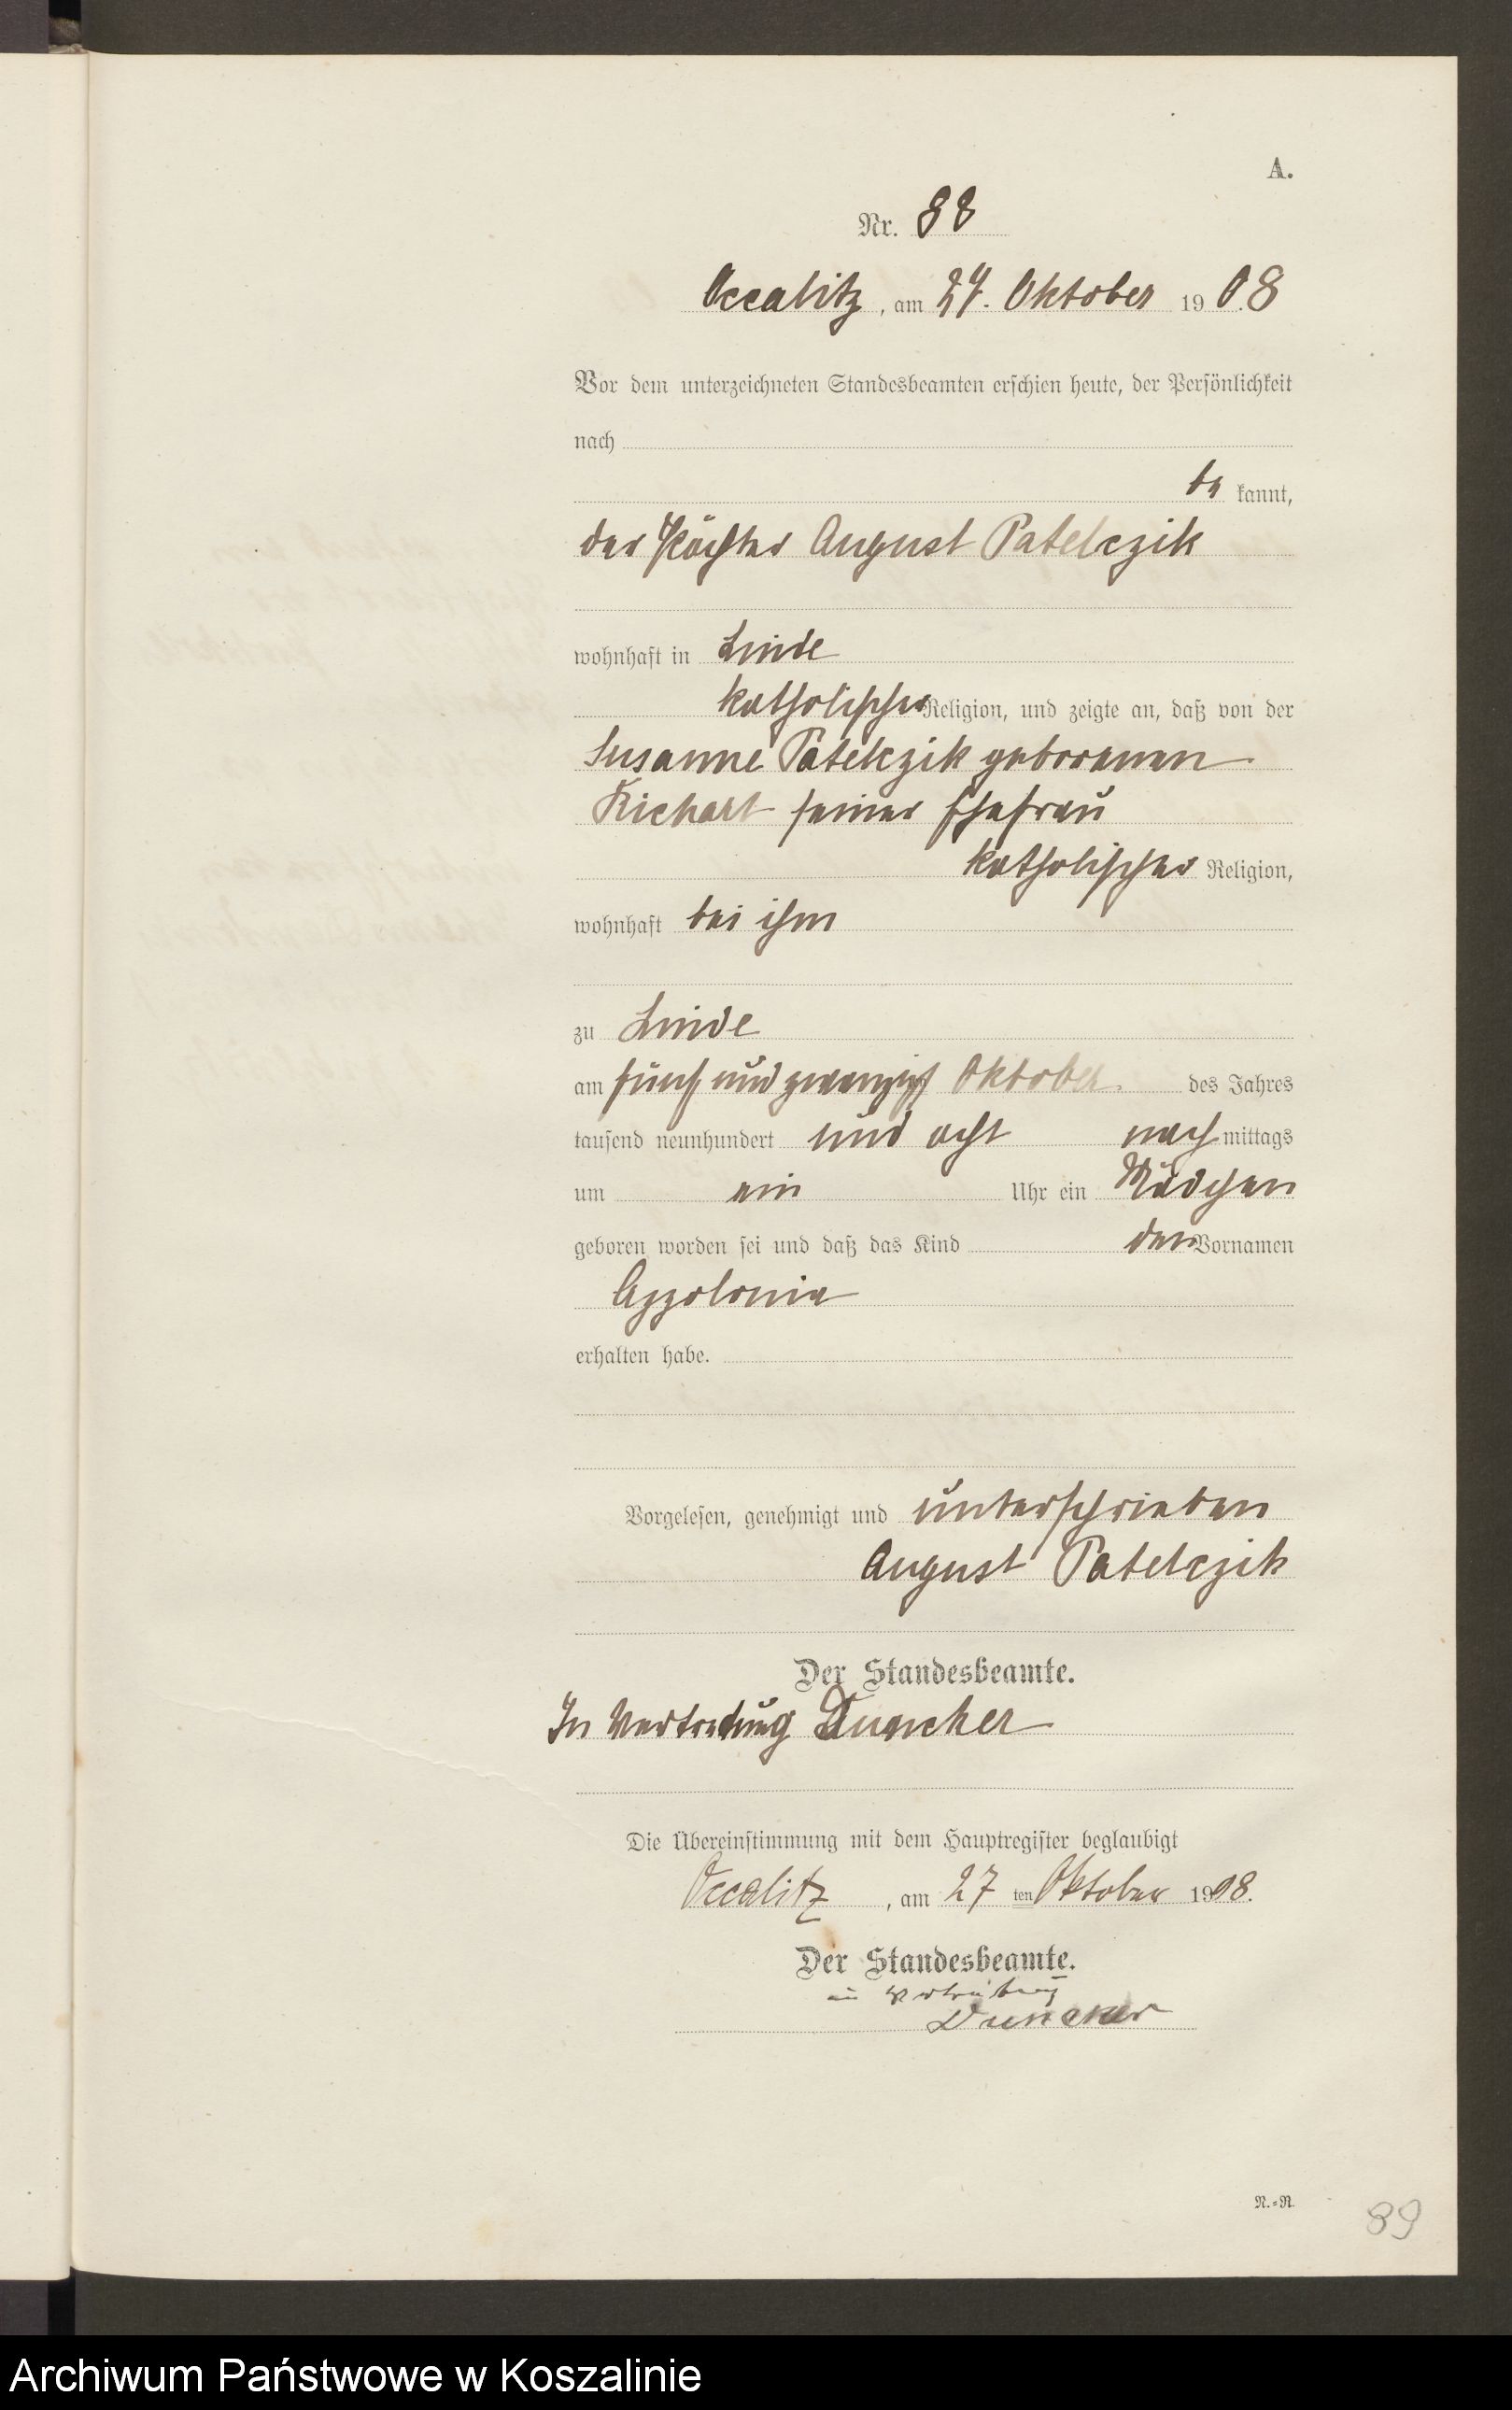 A.
Nr. 88
Occalitz, am 27. Oktober 1908
Vor dem unterzeichneten Standesbeamten erschien heute, der Persönlichkeit
nach
be kannt,
der Pächter August Patelczik
wohnhaft in Linde
katholischer Religion, und zeigte an, daß von der
Susanne Patelczik geborenen
Richart seiner Ehefrau
katholischer Religion,
wohnhaft bei ihm
zu Linde
am fünf und zwanzigst Oktober des Jahres
tausend neunhundert und acht nachmittags
um ein Uhr ein Mädchen
geboren worden sei und daß das Kind den Vornamen
Appolonia
erhalten habe.
Vorgelesen, genehmigt und unterschrieben
August Patelczik
Der Standesbeamte.
In Vertretung Duncker
Die Übereinstimmung mit dem Hauptregister beglaubigt
Occalitz, am 27 ten Oktober 1908.
Der Standesbeamte.
in Vertretung
Duncker
N.=R.
89
Archiwum Państwowe w Koszalinie